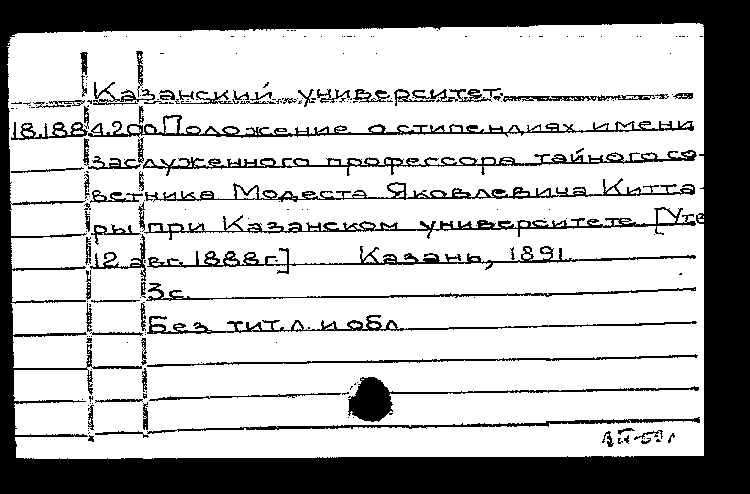 Казанский университет.
18.188 4.200 Положение о стипендиях имени
заслуженного профессора тайного со-
ветника Модеста Яковлевича Китта-
ры при Казанском университете. [Утв
12 авг. 1888г.] Казань, 1891.
3 с.
Без тит. л. и обл.